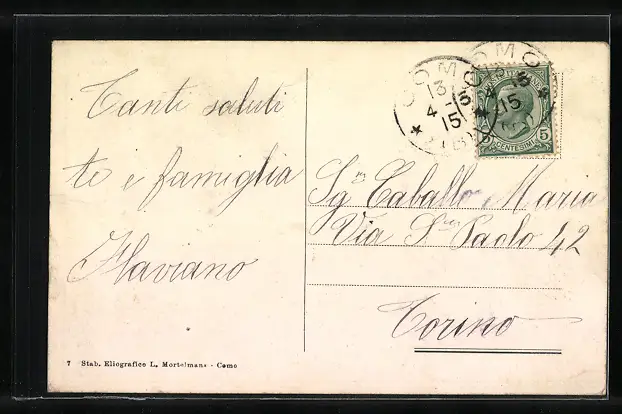 Tanti saluti
te e famiglia
Flaviano
COMO
13
4-15
15
COMO
15
CENTESIMI 5
Sg.ra Caballo Maria
Via S. Paolo 42
Torino
7 Stab. Eliografico L. Mortelmans - Como